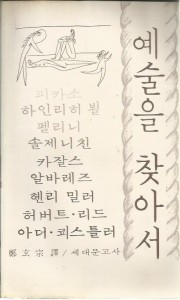 예술을 찾아서
피카소
하인리히 뵐
펠리니
솔제니친
카잘스
알바레즈
헨리 밀러
허버트·리드
아더·쾨스틀러
鄭玄宗 譯 / 세대문고사